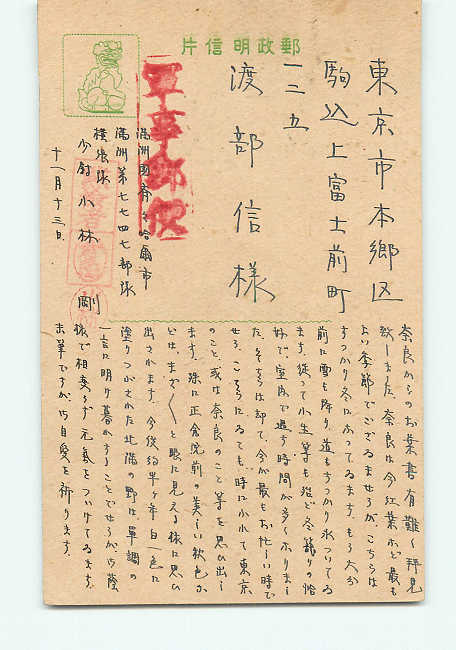 郵政明信片
軍事郵便
東京市本郷区
駒込上富士前町
一二五
渡部信様
満洲国斉々哈爾市
満洲第七七四七部隊
横張隊
少尉小林剛
十一月十三日
奈良からのお葉書有難く拝見
致しました、奈良は今紅葉など最も
よい季節でございませうが、こちらは
すつかり冬になつてゐます、もう大分
前に雪も降り道もすつかり氷つてゐ
ます、従つて小生等も殆ど冬籠りの恰
好で、室内で過す時間が多くなりまし
た、そちらは却て、今が最もお忙しい時で
せう、こちらにゐても、時にふれて東京
のこと或は奈良のこと等を思ひ出し
ます、殊に正倉院前の美しい秋色な
どは、まざ〱と眼に見える様に思ひ
出されます、今後約半ヶ年白一色に
塗りつぶされた北満の野は単調の
一言に明り暮れすることでせうが、お蔭
様で相変らず元気をつけてゐます、
末筆ですが、御自愛を祈ります、